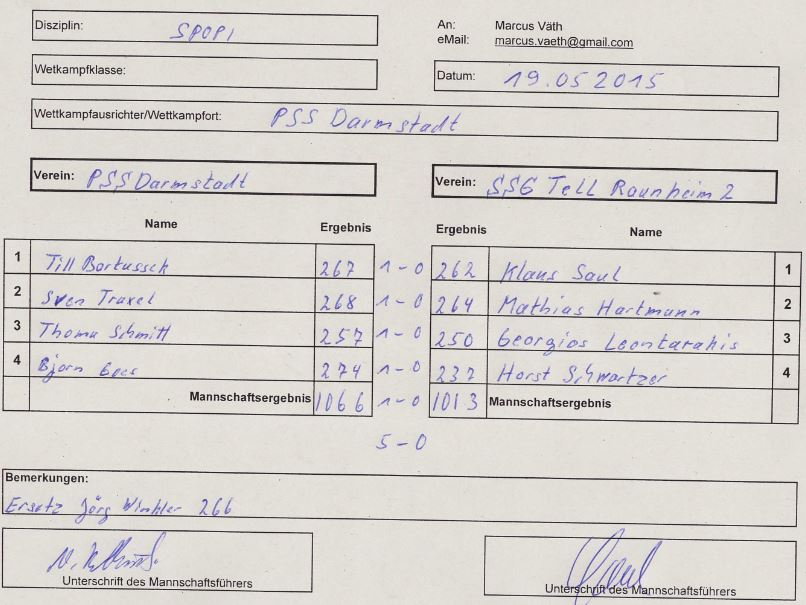 Disziplin: SPOPI
An: Marcus Väth
eMail: marcus.vaeth@gmail.com
Wetkampfklasse:
Datum: 19.05.2015
Wettkampfausrichter/Wettkampfort: PSS Darmstadt
Verein: PSS Darmstadt
Verein: SSG Tell Raunheim 2
Name Ergebnis Ergebnis Name
1 Till 267 1-0 262 Klaus Saul 1
2 Sven 268 1-0 264 Mathias Hartmann 2
3 Thoma Schmitt 257 1-0 250 Georgios Leontarakis 3
4 Björn 274 1-0 237 Horst Schwartzer 4
Mannschaftsergebnis 1066 1-0 1013 Mannschaftsergebnis
5-0
Bemerkungen:
Ersatz Jörg Winkler 266
Unterschrift des Mannschaftsführers
Unterschrift des Mannschaftsführers